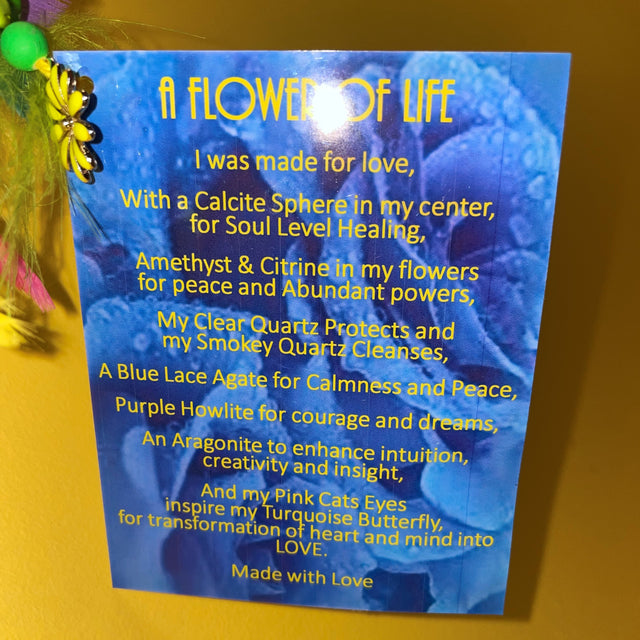 A FLOWER OF LIFE
I was made for love,
With a Calcite Sphere in my center,
for Soul Level Healing,
Amethyst & Citrine in my flowers
for peace and Abundant powers,
My Clear Quartz Protects and
my Smokey Quartz Cleanses,
A Blue Lace Agate for Calmness and Peace,
Purple Howlite for courage and dreams,
An Aragonite to enhance intuition,
creativity and insight,
And my Pink Cats Eyes
inspire my Turquoise Butterfly,
for transformation of heart and mind into
LOVE.
Made with Love